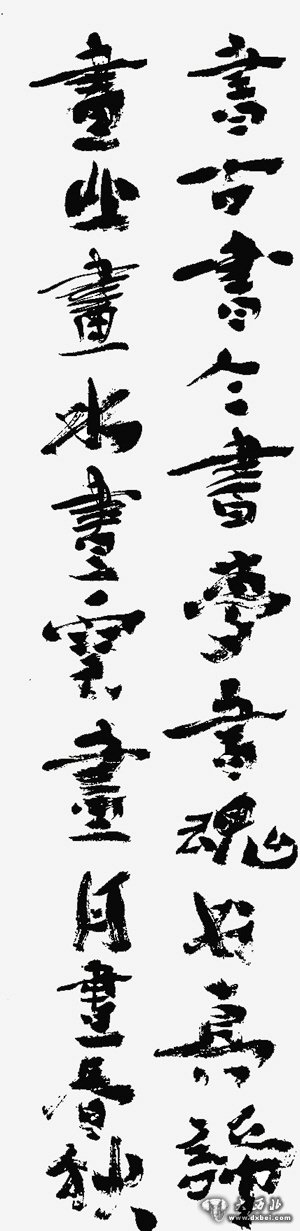 書古書今書夢書魂真諦
畫山畫水畫雲畫月畫春秋
大西北
www.dxbei.com